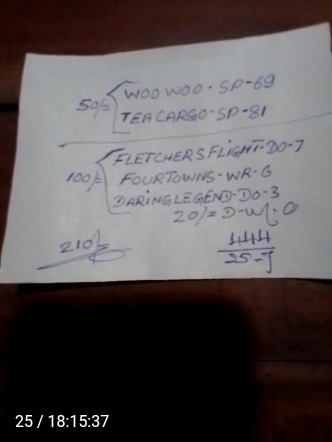 50/= WOO WOO - SP-69
TEA CARGO - SP-81
100/= FLETCHERS FLIGHT - DO-7
FOUR TOWNS - WR-6
DARING LEGEND - DO-3
20/= D-W/-O
210/=
444
25-J
25 / 18:15:37